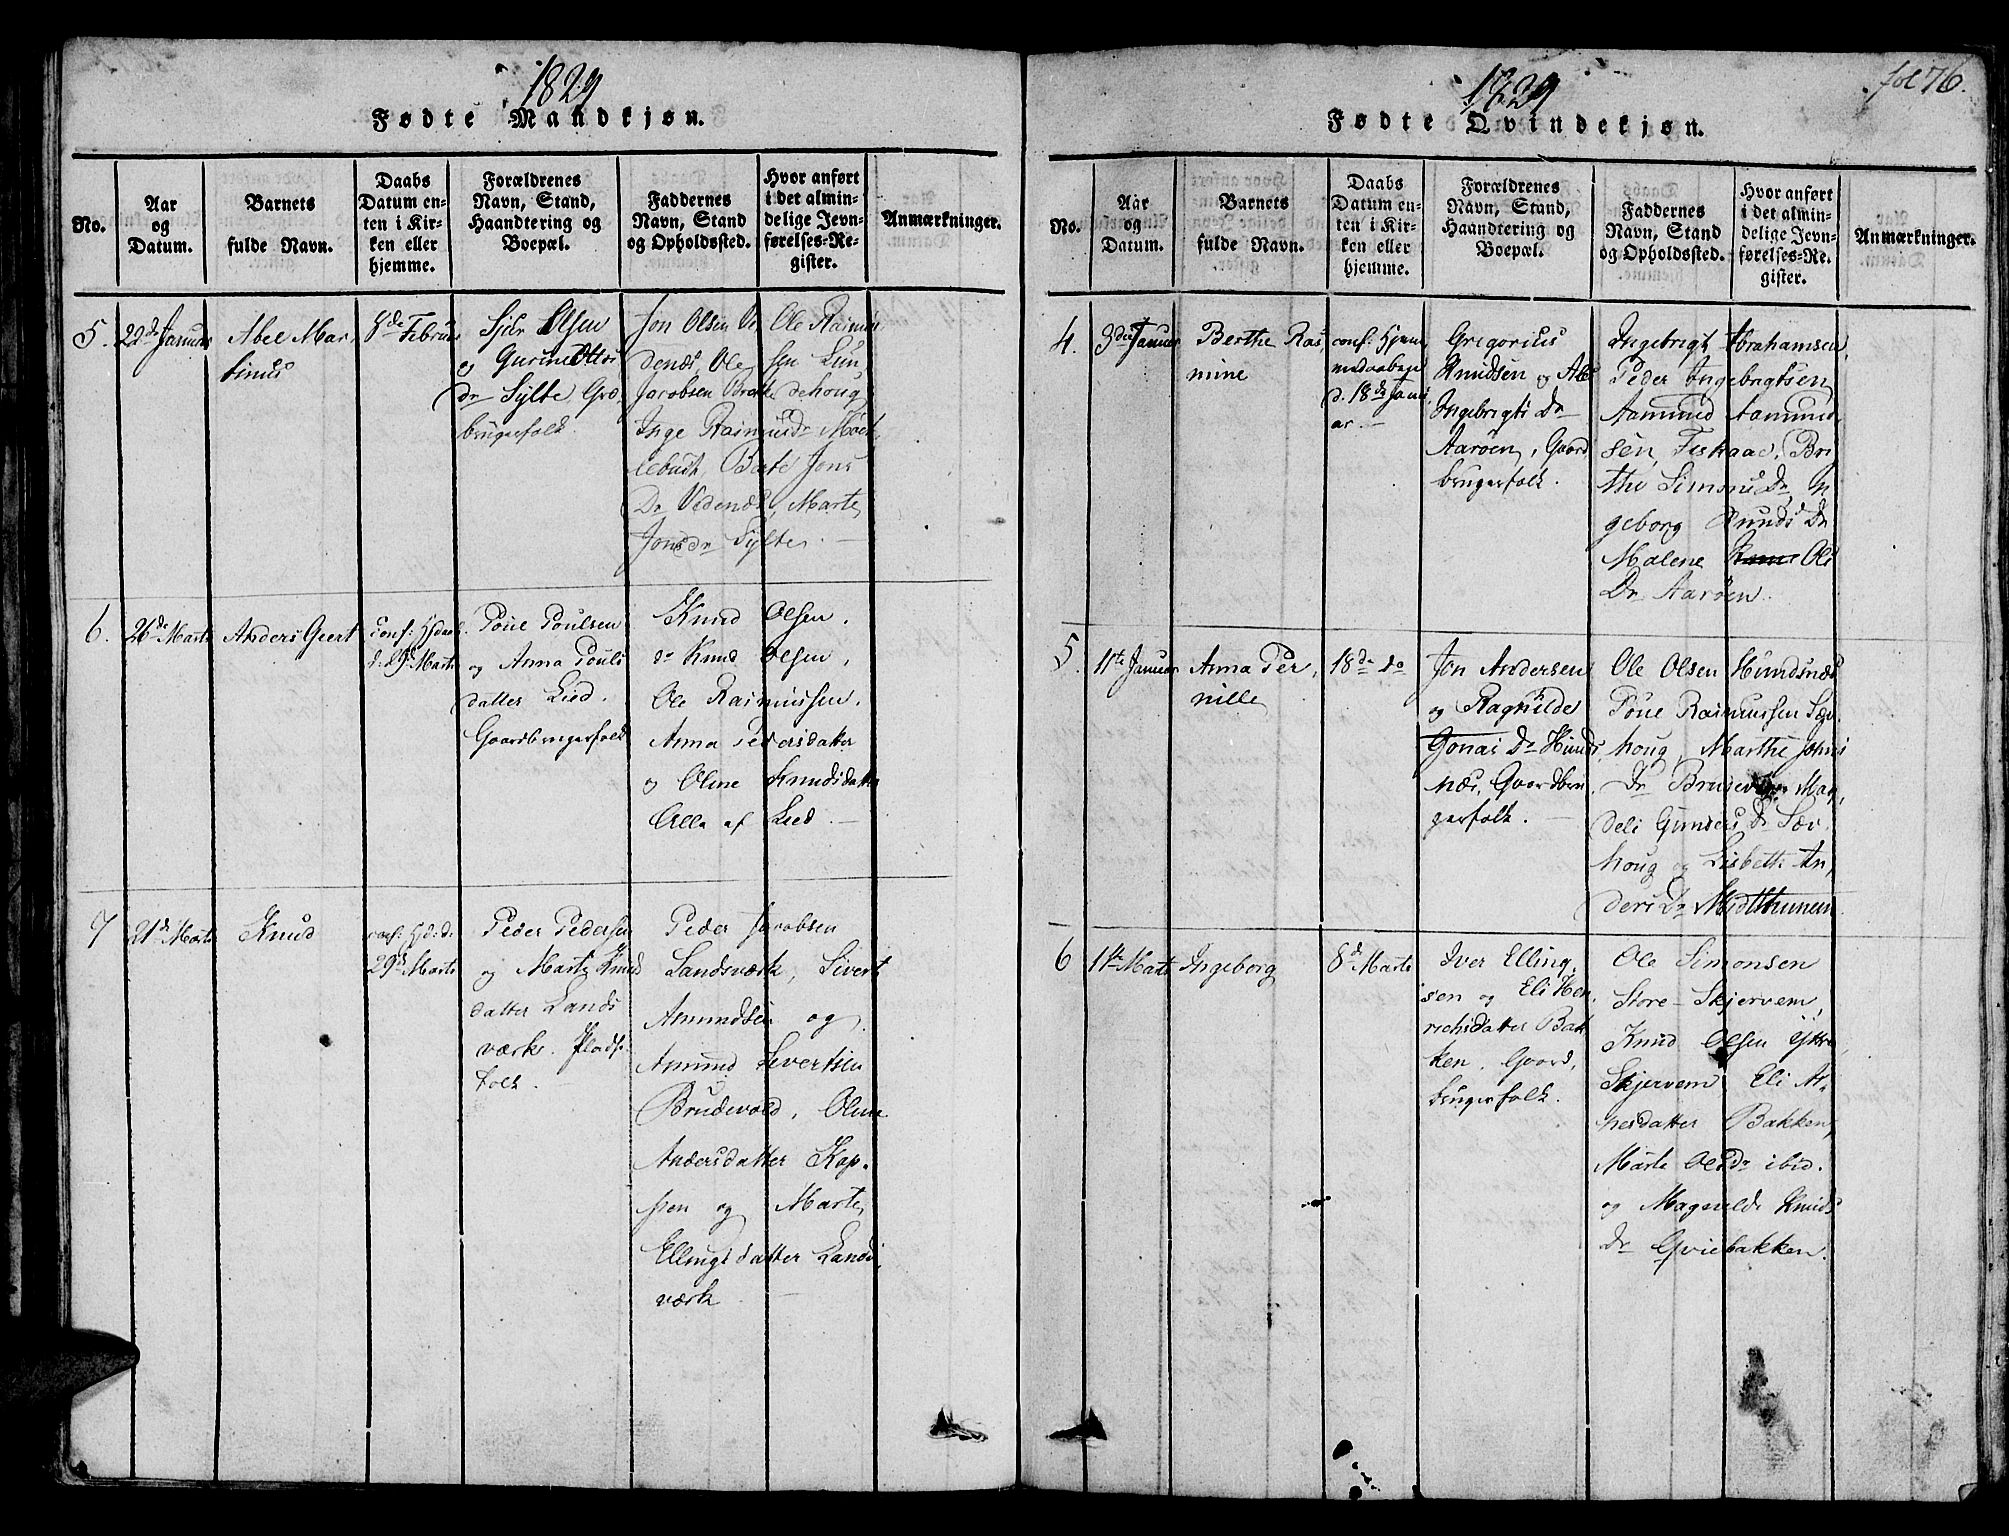 1829
Fødte Mandkjøn.
No.
Aar
og
Datum.
Barnets
fulde Navn.
Daabs
Datum en-
ten i Kir-
ken eller
hjemme.
Forældrenes
Navn, Stand,
Haandtering og
Boepæl.
Faddernes
Navn, Stand
og Opholdssted.
Hvor anført
i det almin-
delige Jevn-
førelses-Re-
gister.
Anmærkninger.
5.
Abel Mar-
tinus
8de Februar
Olsen
og
Dr Sylte,
brugerfolk.
Jon Olsen Ve
denæs, Ole
Jacobsen
Ole Rasmu
sen Lin
dehoug
Inge Rasmusdr
Berte Jons
Dr Vedenæs, Marte
Jonsdr Sylte. —
6.
26de Marts
Anders Geert
d. 29 Marts
Poul Poulsen
og Anna Pouls
datter Lied.
Gaardbrugerfolk
Knud Olsen,
do Knud Olsen,
Ole Rasmussen,
Anna Pedersdatter
og Oline Knudsdatter
Alle af Lied. —
7
21d Marts
Knud
29de Marts
Peder Pedersen
og Marte Knud
datter Lands
værk. Plads-
folk.
Peder Jacobsen
Landsværk, Sivert
Amundsen og
Amund Sivertsen
Brudevold, Oline
Andersdatter Kap-
pen og Marte
Ellingsdatter Lands
værk
fol 76.
1829
Fødte Qvindekjøn.
No.
Aar
og
Datum.
Barnets
fulde Navn.
Daabs
Datum en-
ten i Kir-
ken eller
hjemme.
Forældrenes
Navn, Stand,
Haandtering og
Boepæl.
Faddernes
Navn, Stand
og Opholdssted.
Hvor anført
i det almin-
delige Jevn-
førelses-Re-
gister.
Anmærkninger.
4.
3die Januar
Berthe Ras-
mine
conf: Hjem
medaaben
d. 18de Janu
ar. —
Gregorius
Knudsen og
Ingebrigts Dr
Aarøen, Gaard
brugerfolk.
Ingebrigt Abrahamsen,
Peder Ingebrigtsen,
Aamund Aamund
sen, Fiskaae, Bri
the Simons Dr, In
geborg Knuds Dr
Malene Ols
Dr Aarøen.
5.
11te Januar
Anna Per
nille
18de do
Jon Andersen
og Ragnilde
Jonas Dr Hunds
næs, Gaardbru
gerfolk. —
Ole Olsen Hundsnæs
Poul Rasmussen Sæv
houg, Marthe Johns
Dr Mag
deli Gunders Dr Sæv
houg og Lisbeth An
ders Dr Midthunem
6
1te Marts
Ingeborg
8d Marts
Iver Elling
sen og Eli Hen
richsdatter Bak
ken, Gaard,
brugerfolk.
Ole Simonsen
Store-Skjervem,
Knud Olsen Yttre
Skjervem, Eli Ar
nesdatter Bakken,
Marte Olsdr ibid.
og Magnilde Knuds
Dr Qviebakken.